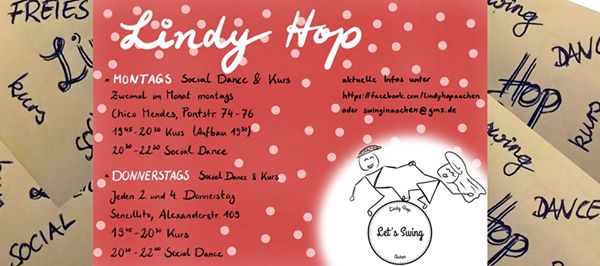 FREIES
Lindy Hop
MONTAGS Social Dance & Kurs
Zweimal im Monat montags
Chico Mendes, Pontstr. 74-76
19⁴⁵-20³⁰ Kurs (Aufbau 19³⁰)
20³⁰-22³⁰ Social Dance
DONNERSTAGS Social Dance & Kurs
Jeden 2 und 4 Donnerstag
Sencillito, Alexanderstr. 109
19⁴⁵-20³⁰ Kurs
20³⁰-22⁰⁰ Social Dance
aktuelle Infos unter
https://facebook.com/lindyhopaachen
oder swinginaachen@gmx.de
Lindy Hop
Let's Swing
Aachen
kurs
SOCIAL
swing
DANCE
Hop
kurs
swing
DANCE
Hop